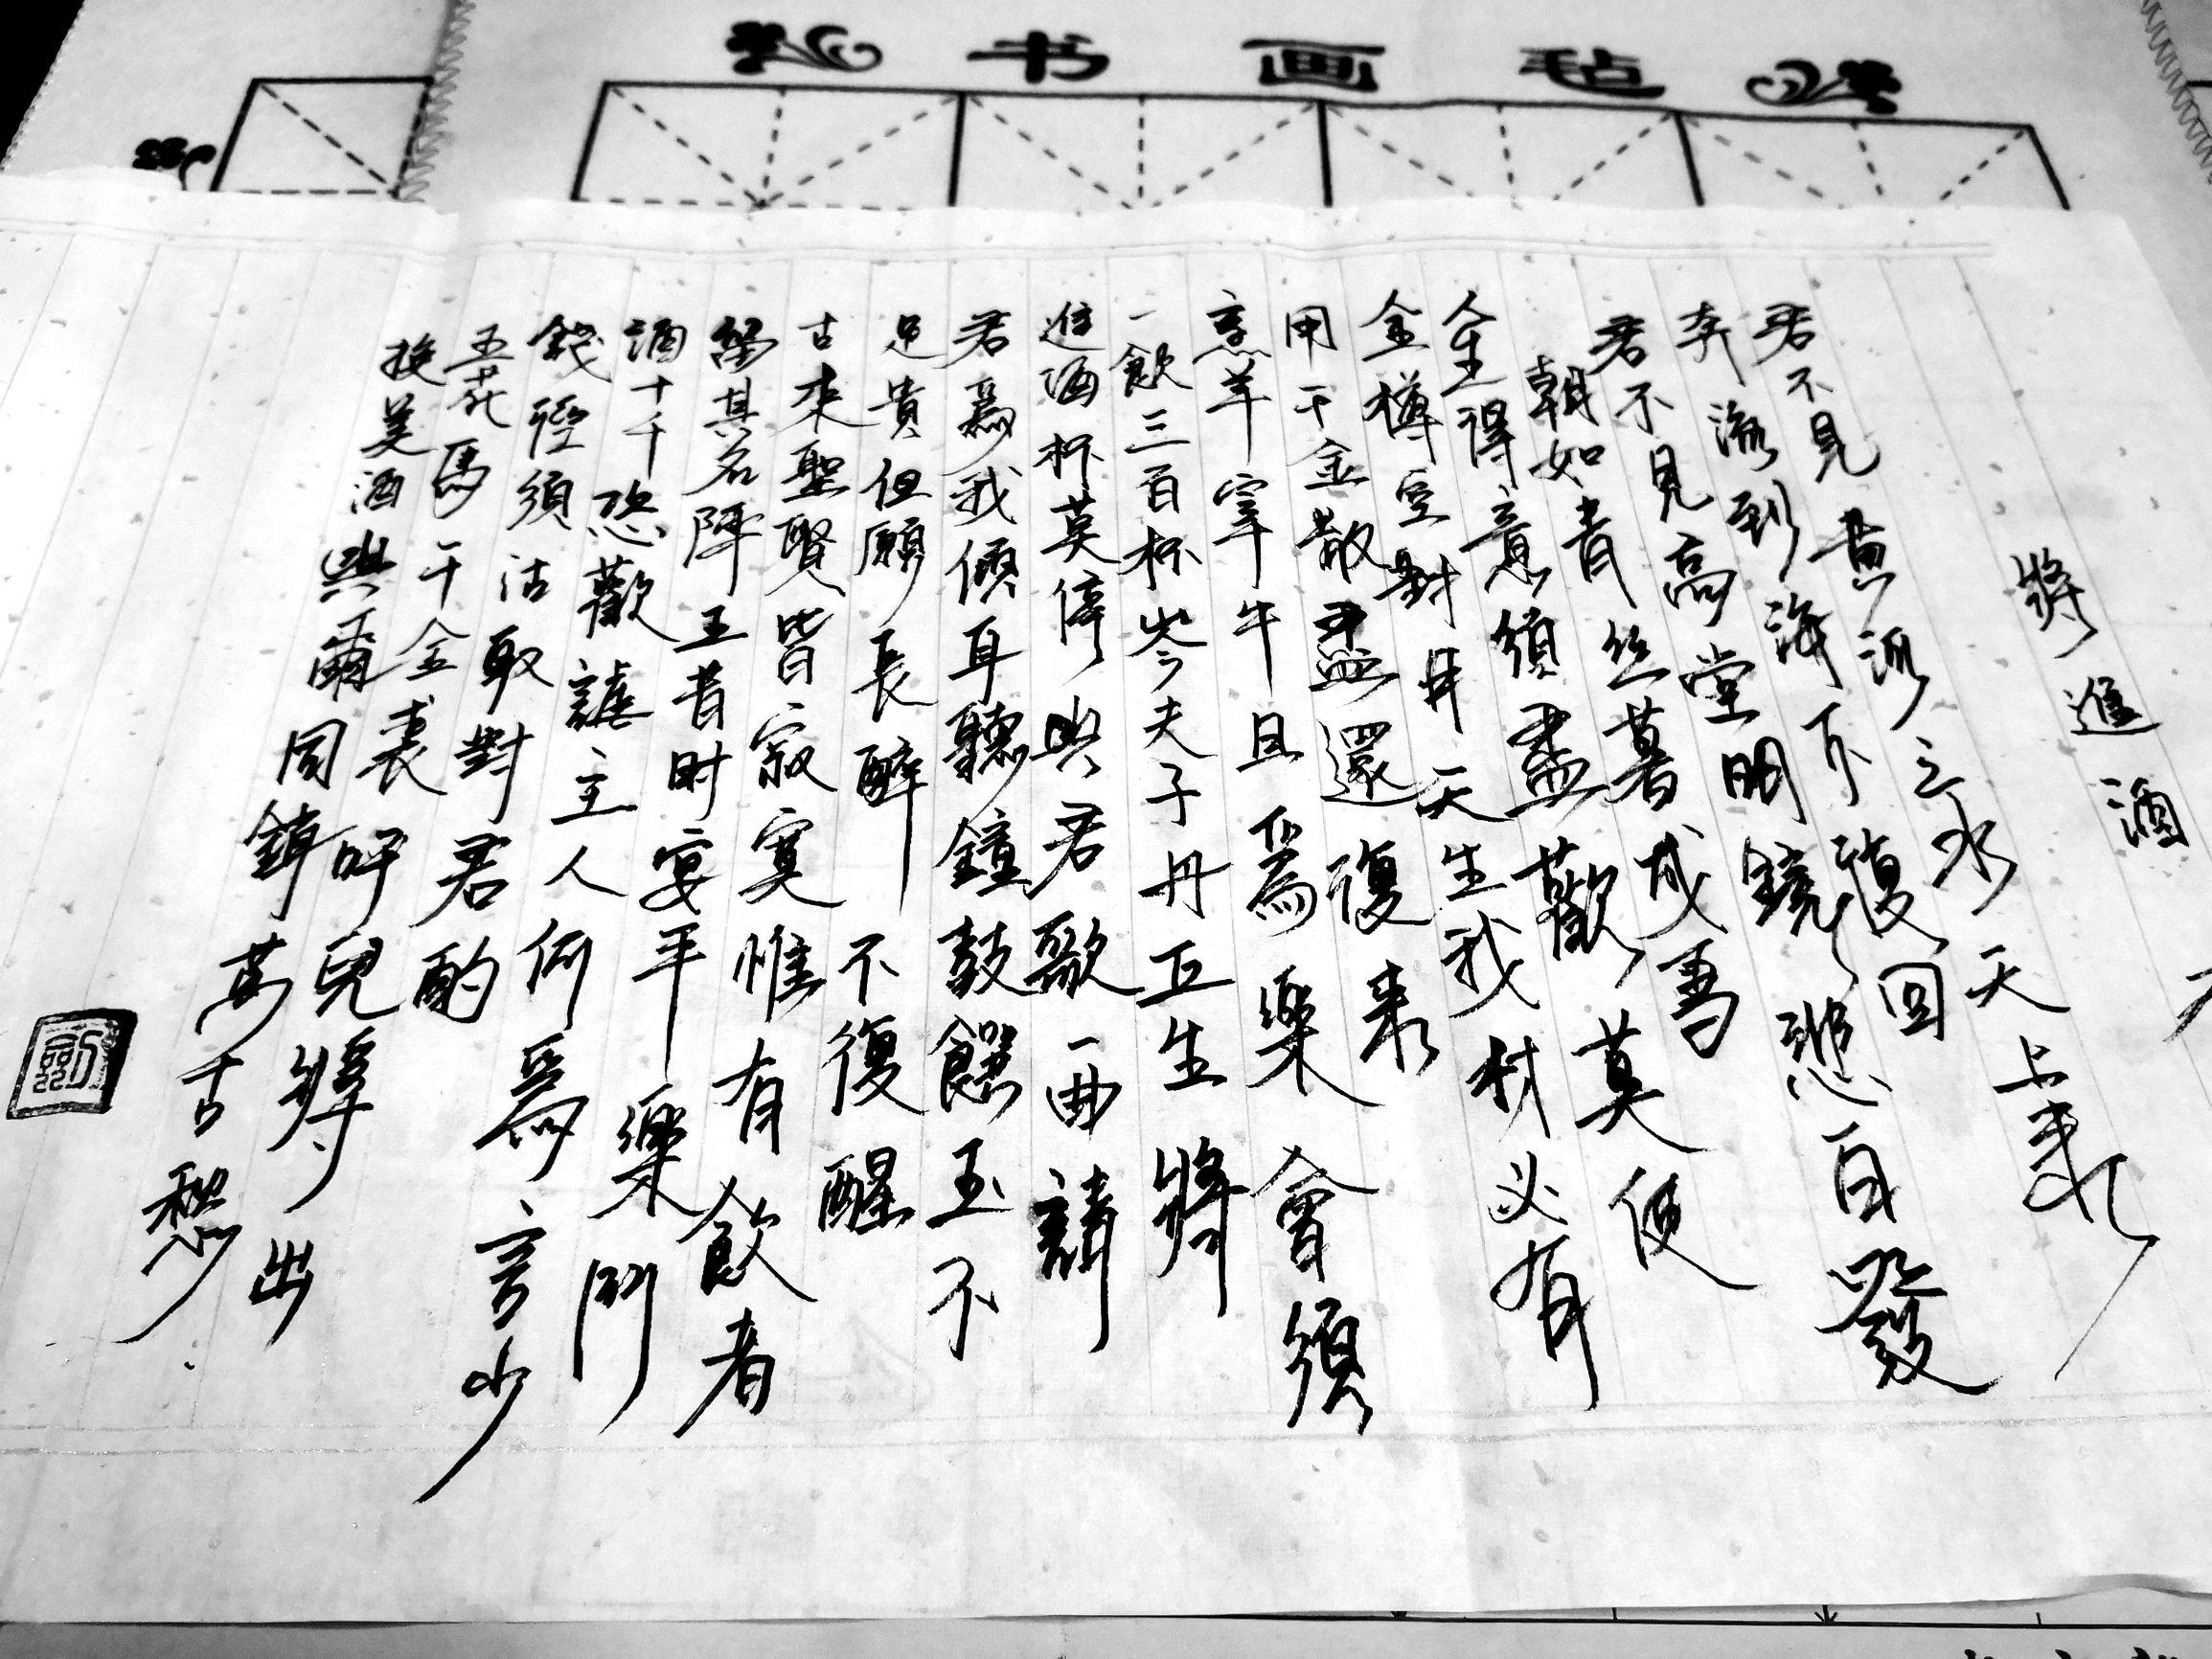 书画毡
將進酒
君不見黄河之水天上来
奔流到海不復回
君不見高堂明鏡悲白發
朝如青丝暮成雪
人生得意須盡歡莫使
金樽空對月天生我材必有
用千金散盡還復来
烹羊宰牛且爲樂會須
一飲三百杯岑夫子丹丘生將
進酒杯莫停與君歌一曲請
君爲我傾耳聽鐘鼓饌玉不
足貴但願長醉不復醒
古来聖賢皆寂寞惟有飲者
留其名陳王昔时宴平樂鬥
酒十千恣歡謔主人何爲言少
錢徑須沽取對君酌
五花馬千金裘呼兒將出
換美酒與爾同銷萬古愁